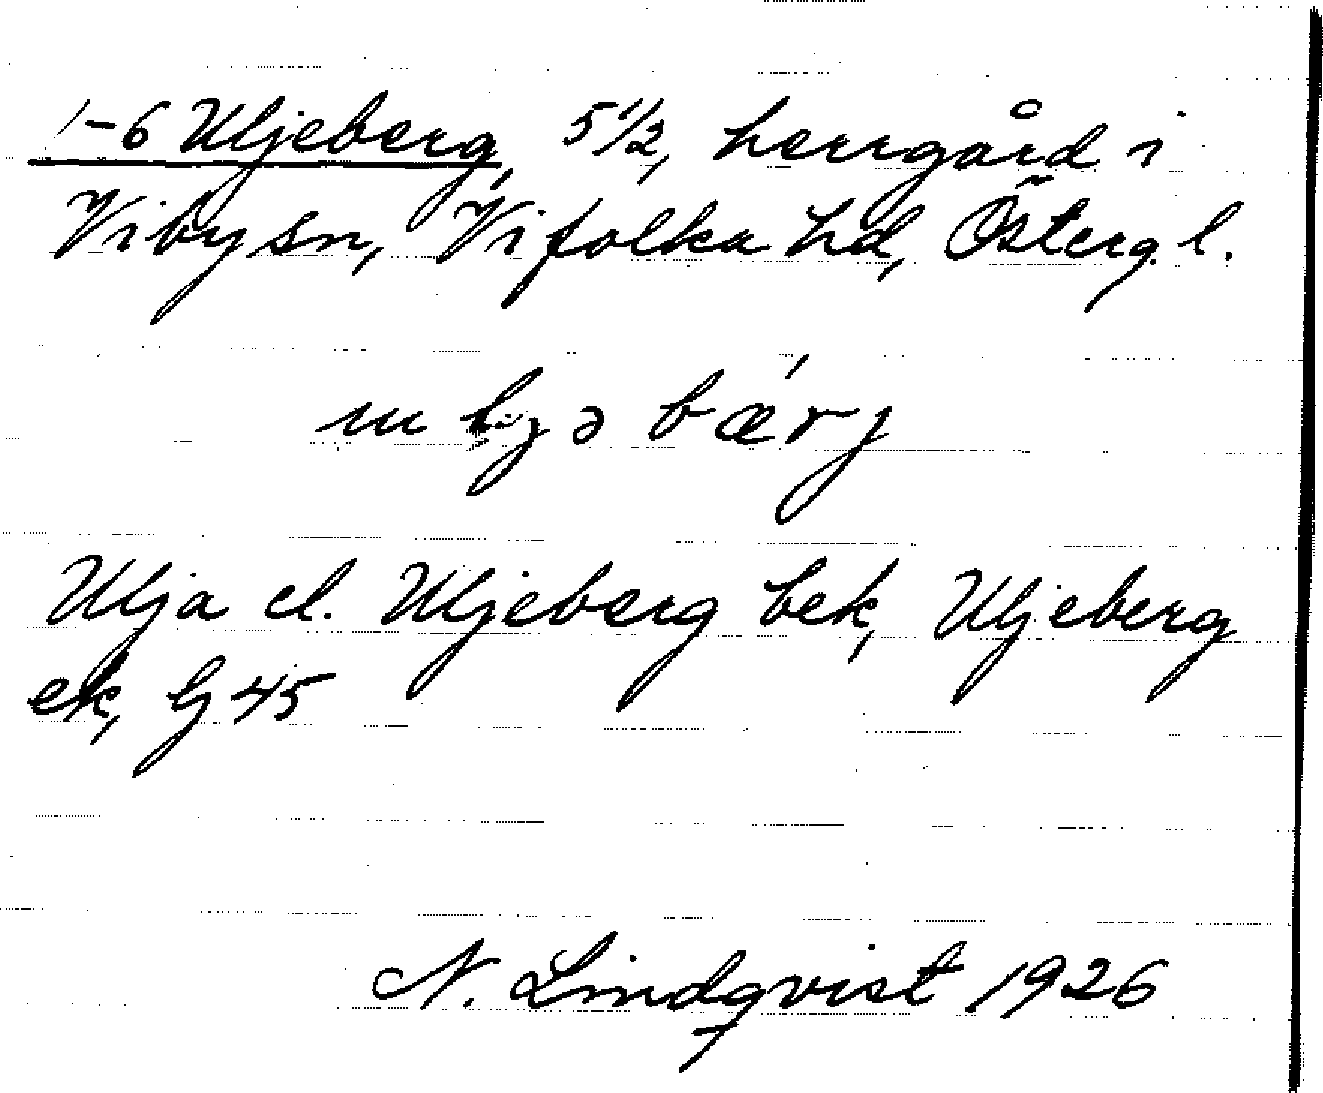 1-6 Uljeberg, 5 1/2, herrgård i
Viby sn, Vifolka hd, Österg. l.
bærj
Ulja el. Uljeberg bek, Uljeberg
ek, G 45
N. Lindqvist 1926